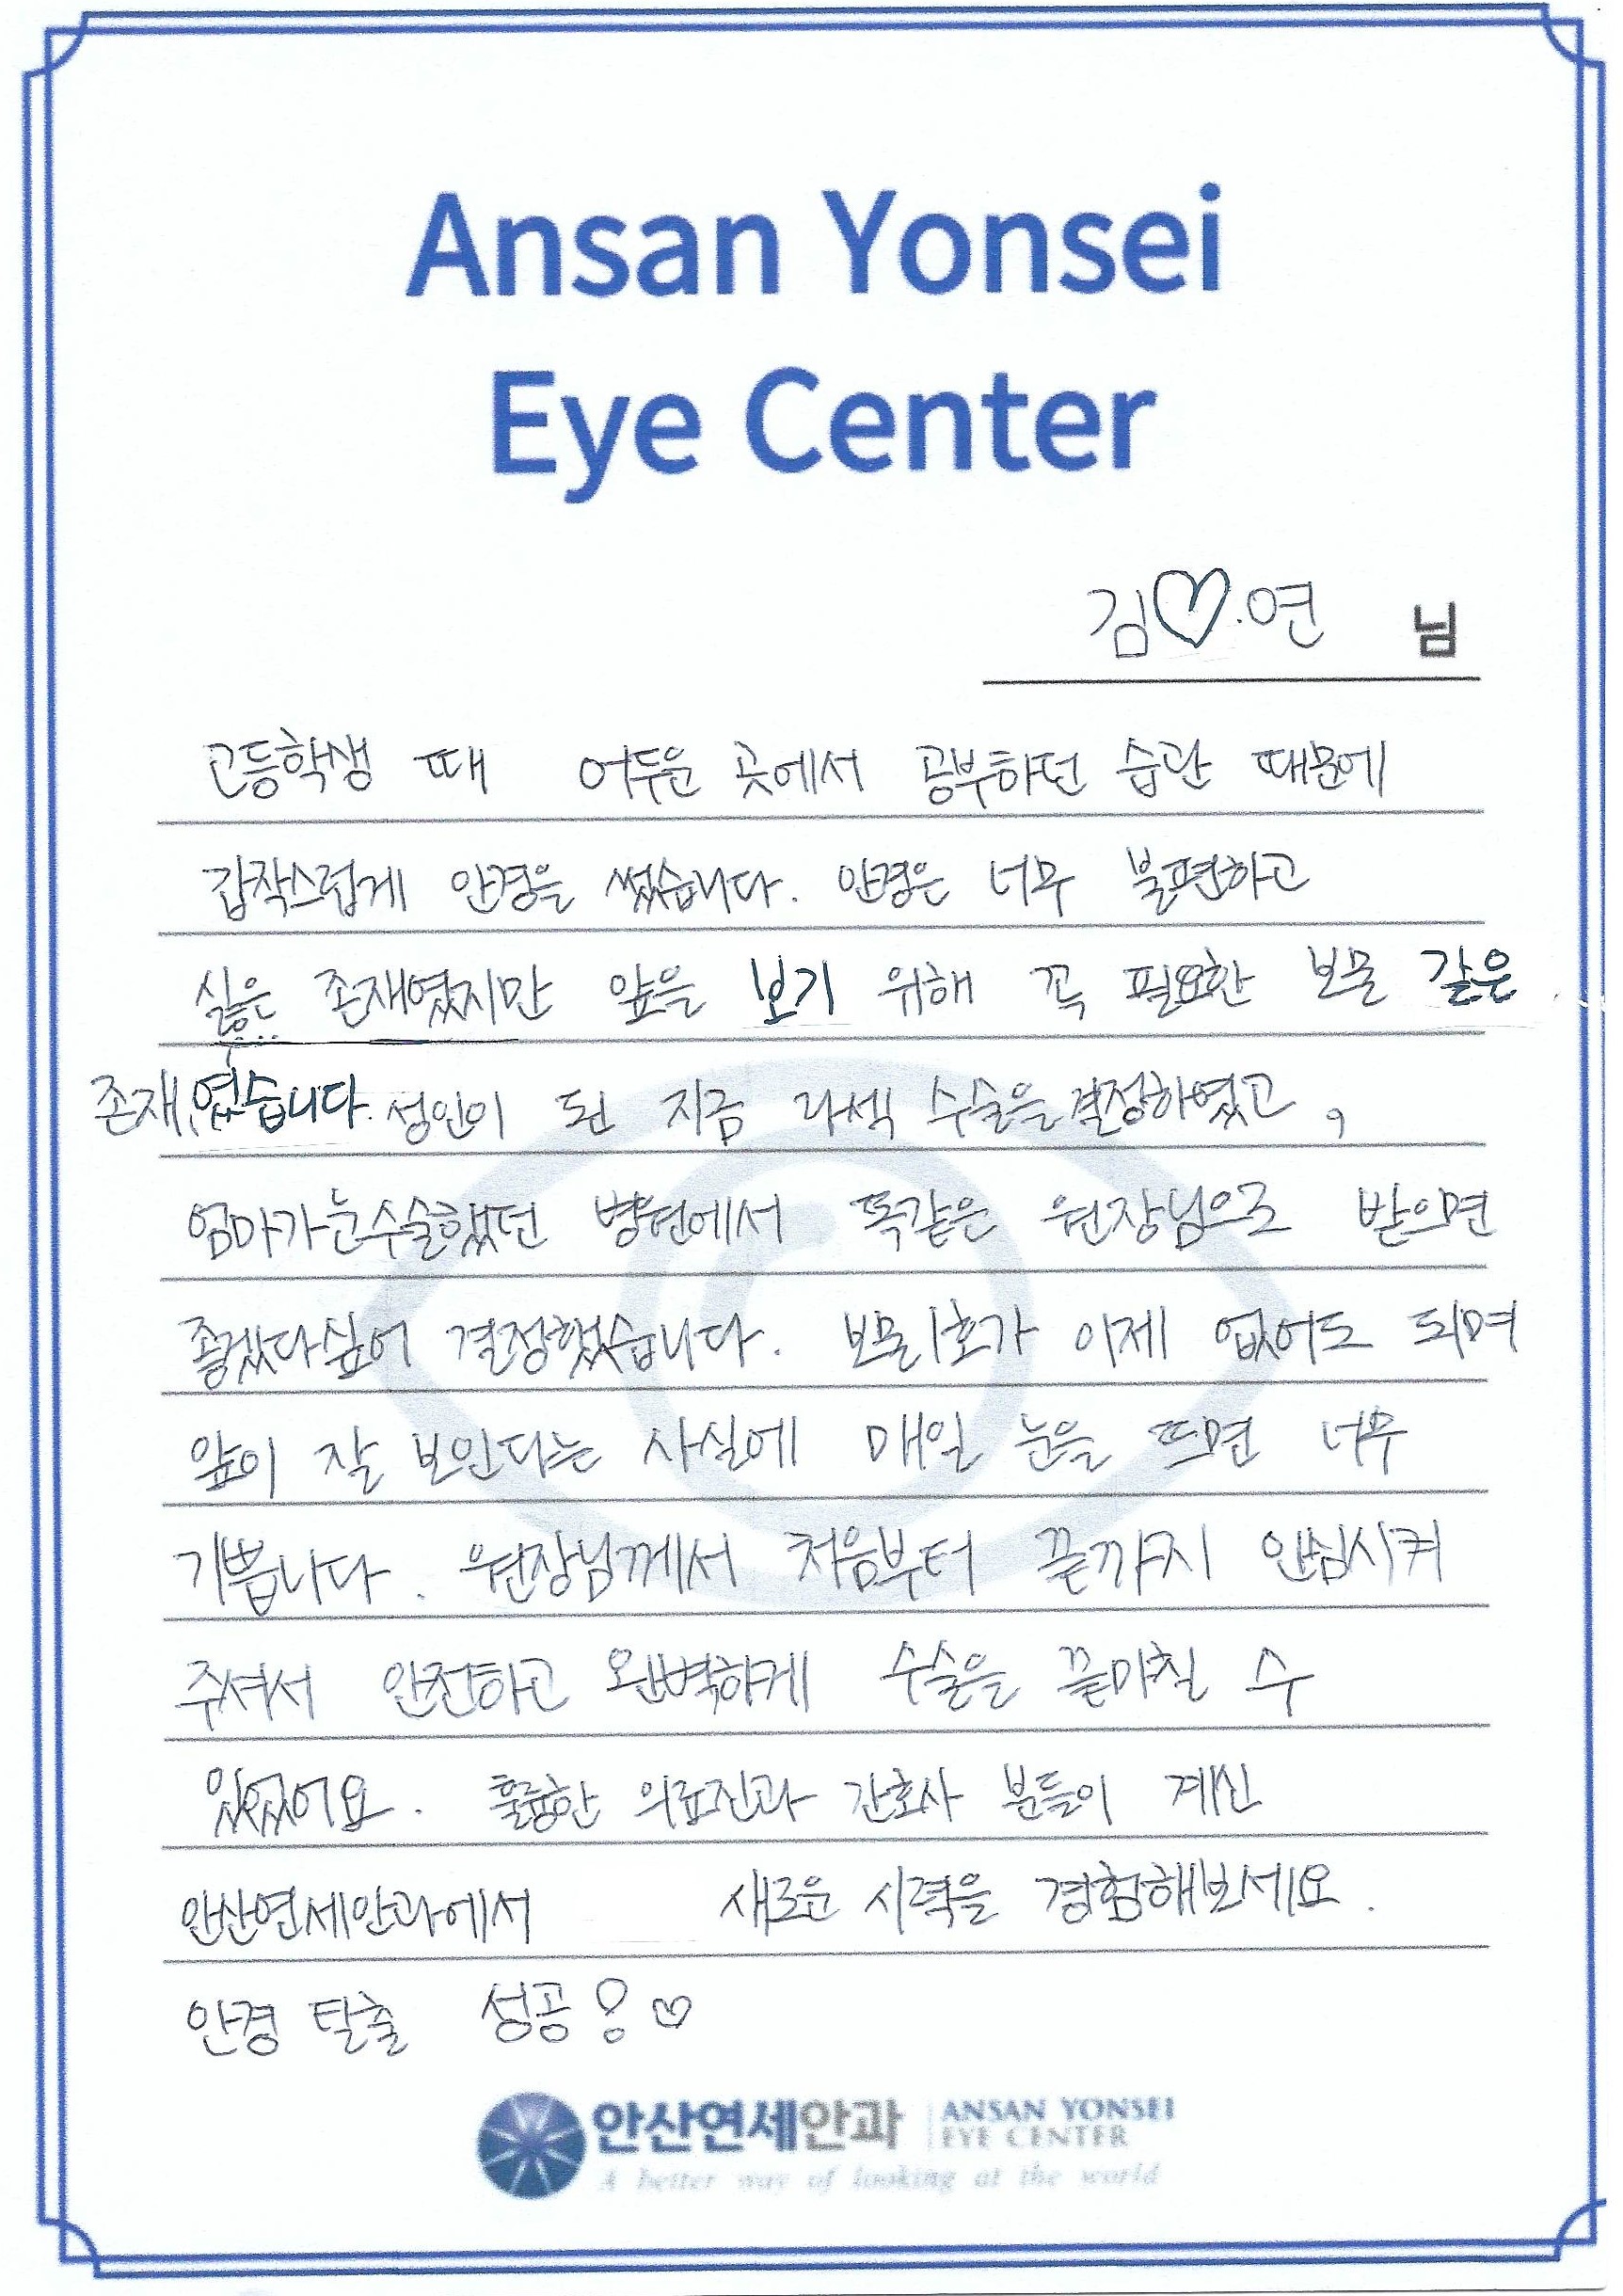 Ansan Yonsei
Eye Center
김♡.연 님
고등학생 때 어두운 곳에서 공부하던 습관 때문에
갑작스럽게 안경을 썼습니다. 안경은 너무 불편하고
싫은 존재였지만 앞을 보기 위해 꼭 필요한 보물 같은
존재였습니다. 성인이 된 지금 라섹 수술을 결정하였고,
엄마가 눈수술했던 병원에서 똑같은 원장님으로 받으면
좋겠다싶어 결정했습니다. 보물1호가 이제 없어도 되며
앞이 잘 보인다는 사실에 매일 눈을 뜨면 너무
기쁩니다. 원장님께서 처음부터 끝까지 안심시켜
주셔서 안전하고 완벽하게 수술을 끝마칠 수
있었어요. 훌륭한 의료진과 간호사 분들이 계신
안산연세안과에서 새로운 시력을 경험해보세요.
안경 탈출 성공!♡
안산연세안과 ANSAN YONSEI
EYE CENTER
A better way of looking at the world